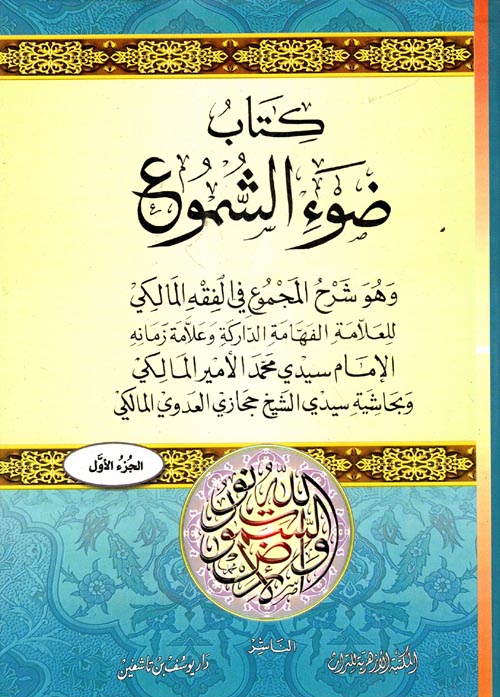 كِتَابُ
ضَوْءِ الشُّمُوعِ
وَهُوَ شَرْحُ المَجْمُوعِ فِي الفِقْهِ المَالِكِي
للعلامة الفهامة الداركة وعلامة زمانه
الإمام سيدي محمد الأمير المالكي
وبحاشية سيدي الشيخ حجازي العدوي المالكي
الجُزءُ الأوَّل
الله نور السموات والأرض
الناشر
المكتبة الأزهرية للتراث
دار يوسف بن تاشفين